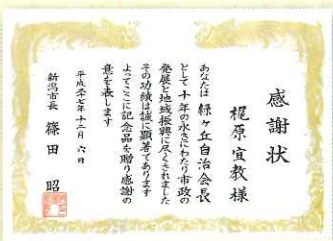 感謝状
梶原宜教様
あなたは 緑ヶ丘自治会長
として十年の永きにわたり市政の
発展と地域振興に尽くされました
その功績は誠に顕著であります
よってここに記念品を贈り感謝の
意を表します
平成二十七年十二月 六日
新潟市長 篠田 昭